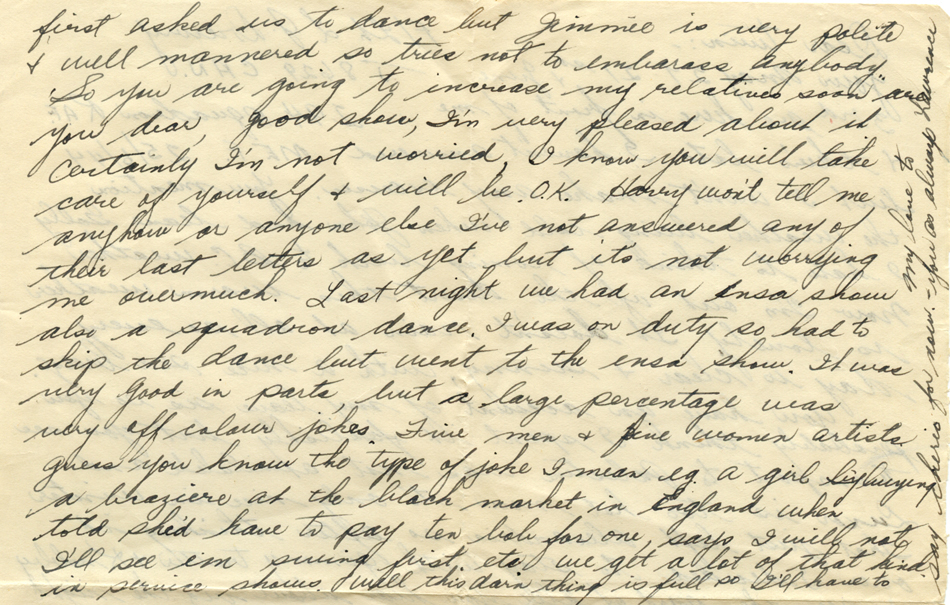 first asked us to dance but Jimmie is very polite
& well mannered so tries not to embarass anybody
"So you are going to increase my relatives soon" are
you dear, good show, I'm very pleased about it
certainly I'm not worried, I know you will take
care of yourself & will be O.K. Harry won't tell me
anyhow or anyone else I've not answered any of
their last letters as yet but it's not worrying
me overmuch. Last night we had an ensa show
also a squadron dance. I was on duty so had to
skip the dance but went to the ensa show. It was
very good in parts, but a large percentage was
very off colour jokes. Five men & five women artists.
guess you know the type of joke I mean eg. a girl buying
a braziere at the black market in England when
told she'd have to pay ten bob for one, says I will not
I'll see em swing first. etc we get a lot of that kind
in service shows. Well this darn thing is full so I'll have to
say cheerio for now. - you as always Lawrence
my love to